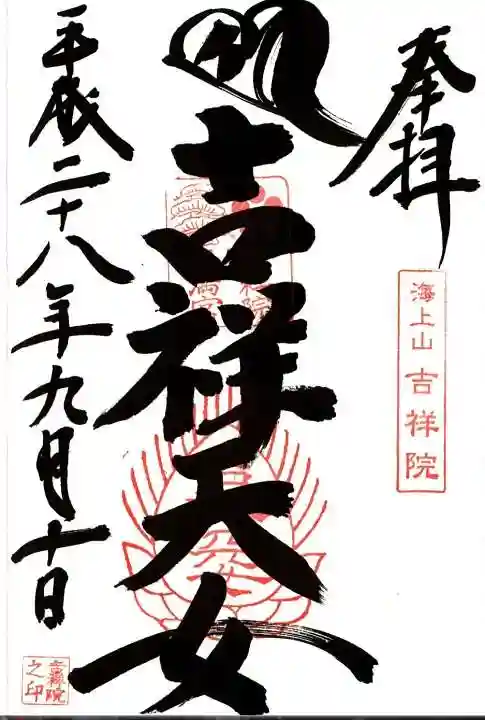 奉拝
海上山 吉祥院
吉祥天女
平成二十八年九月十日
吉祥院
之印